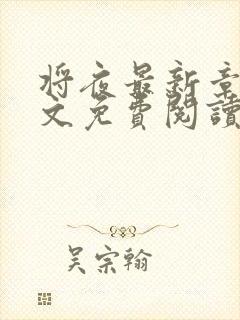 将夜最新章
文免費閱讀
吴宗翰